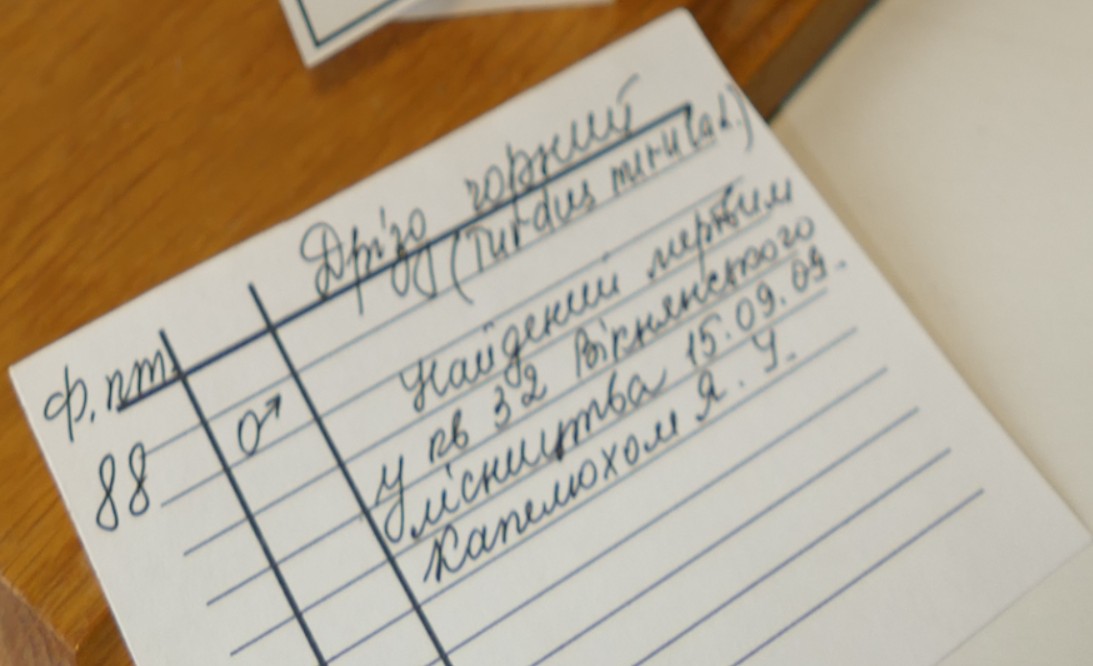 Дрізд чорний
(Turdus merula L.)
ф. пт.
88 ♂
Найдений мертвим
у кв 32 Вікнянского
лісництва 15.09.09.
Капелюхом Я. У.